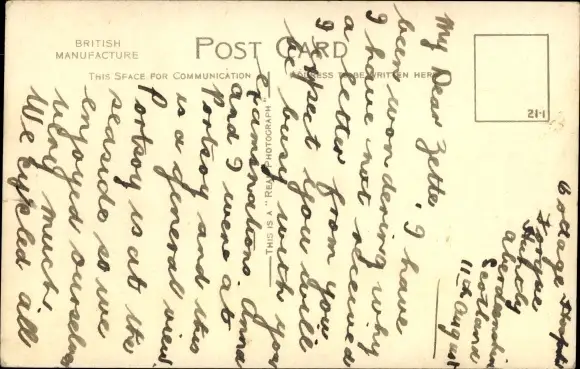 BRITISH
MANUFACTURE
POST CARD
THIS SPACE FOR COMMUNICATION
ADDRESS TO BE WRITTEN HERE
THIS IS A "REAL PHOTOGRAPH"
21-1
Cottage
Forgue
Huntly
Aberdeenshire
Scotland
11th August
My Dear Zette, I have
been wondering why
I have not received
a letter from you
I expect you will
be busy with you
examinations. Anna
and I were at
Portsoy and this
is a general view.
Portsoy is at the
seaside so we
enjoyed ourselves
very much.
We cycled all